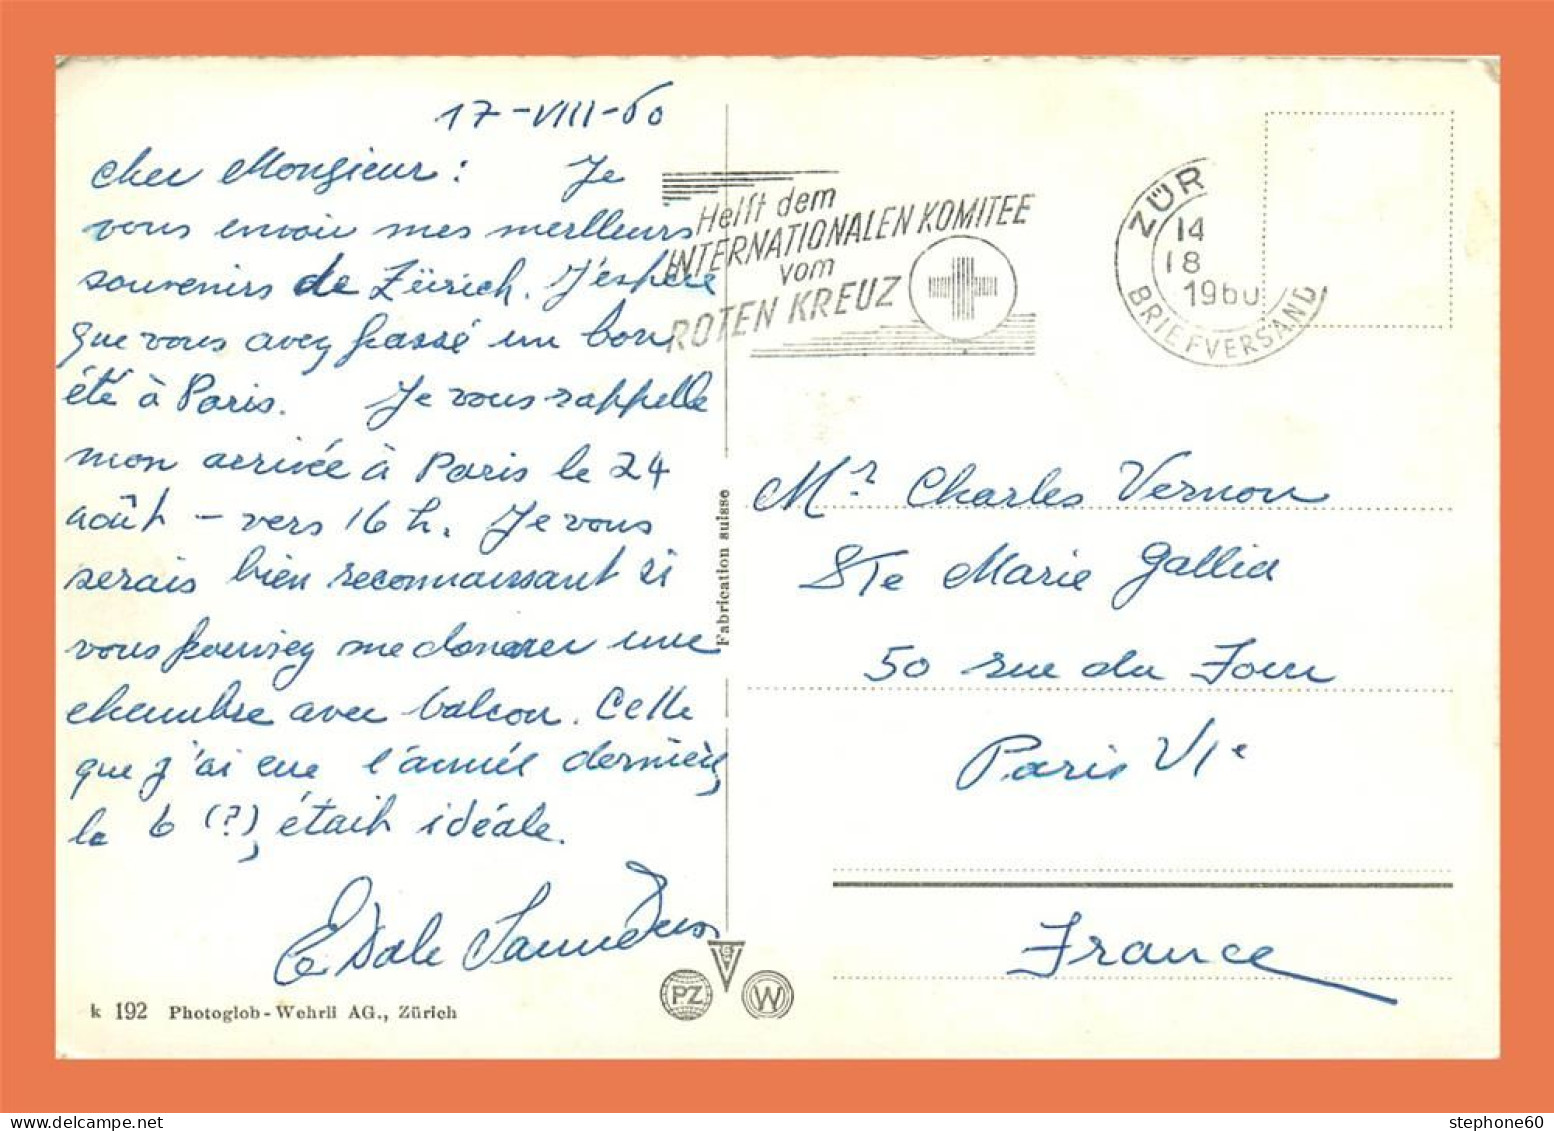 17-VIII-60
Cher Monsieur : Je
vous envoie mes meilleurs
souvenirs de Zürich. J'espère
que vous avez passé un bon
été à Paris. Je vous rappelle
mon arrivée à Paris le 24
août - vers 16 h. Je vous
serais bien reconnaissant si
vous pouviez me donner une
chambre avec balcon. Celle
que j'ai eue l'année dernière,
le 6 (?), était idéale.
E Dale Saunders
k 192 Photoglob-Wehrli AG., Zürich
Fabrication suisse
PZ
W
Helft dem
INTERNATIONALEN KOMITEE
vom
ROTEN KREUZ
ZÜR
14
18
1960
BRIEFVERSAND
Mr. Charles Vernon
Ste Marie Gallia
50 rue du Four
Paris VIe
France
stephone60